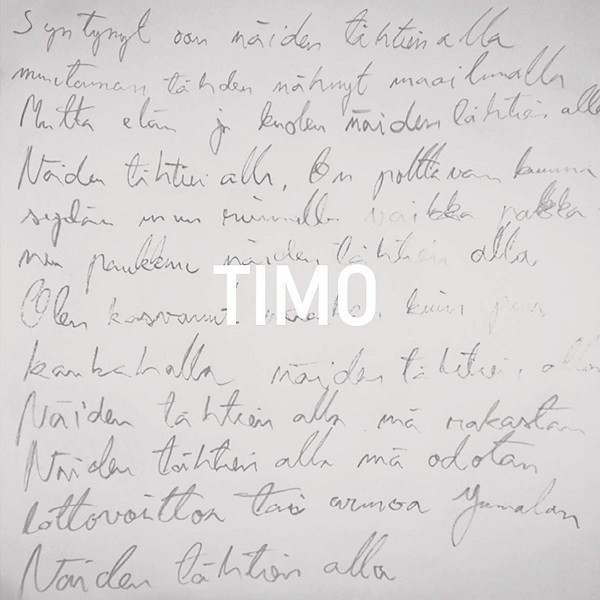 Syntynyt oon näiden tähtien alla
muutaman tähden nähnyt maailmalla
Mutta elän ja kuolen näiden tähtien alla
Näiden tähtien alla. On polttavan kuuma
sydän mun rinnalla vaikka pakka
nen paukkuu näiden tähtien alla
TIMO
Olen kasvanut kuin puu
kankahalla näiden tähtien alla
Näiden tähtien alla mä rakastan
Näiden tähtien alla mä odotan
lottovoittoa tai armoa Jumalan
Näiden tähtien alla